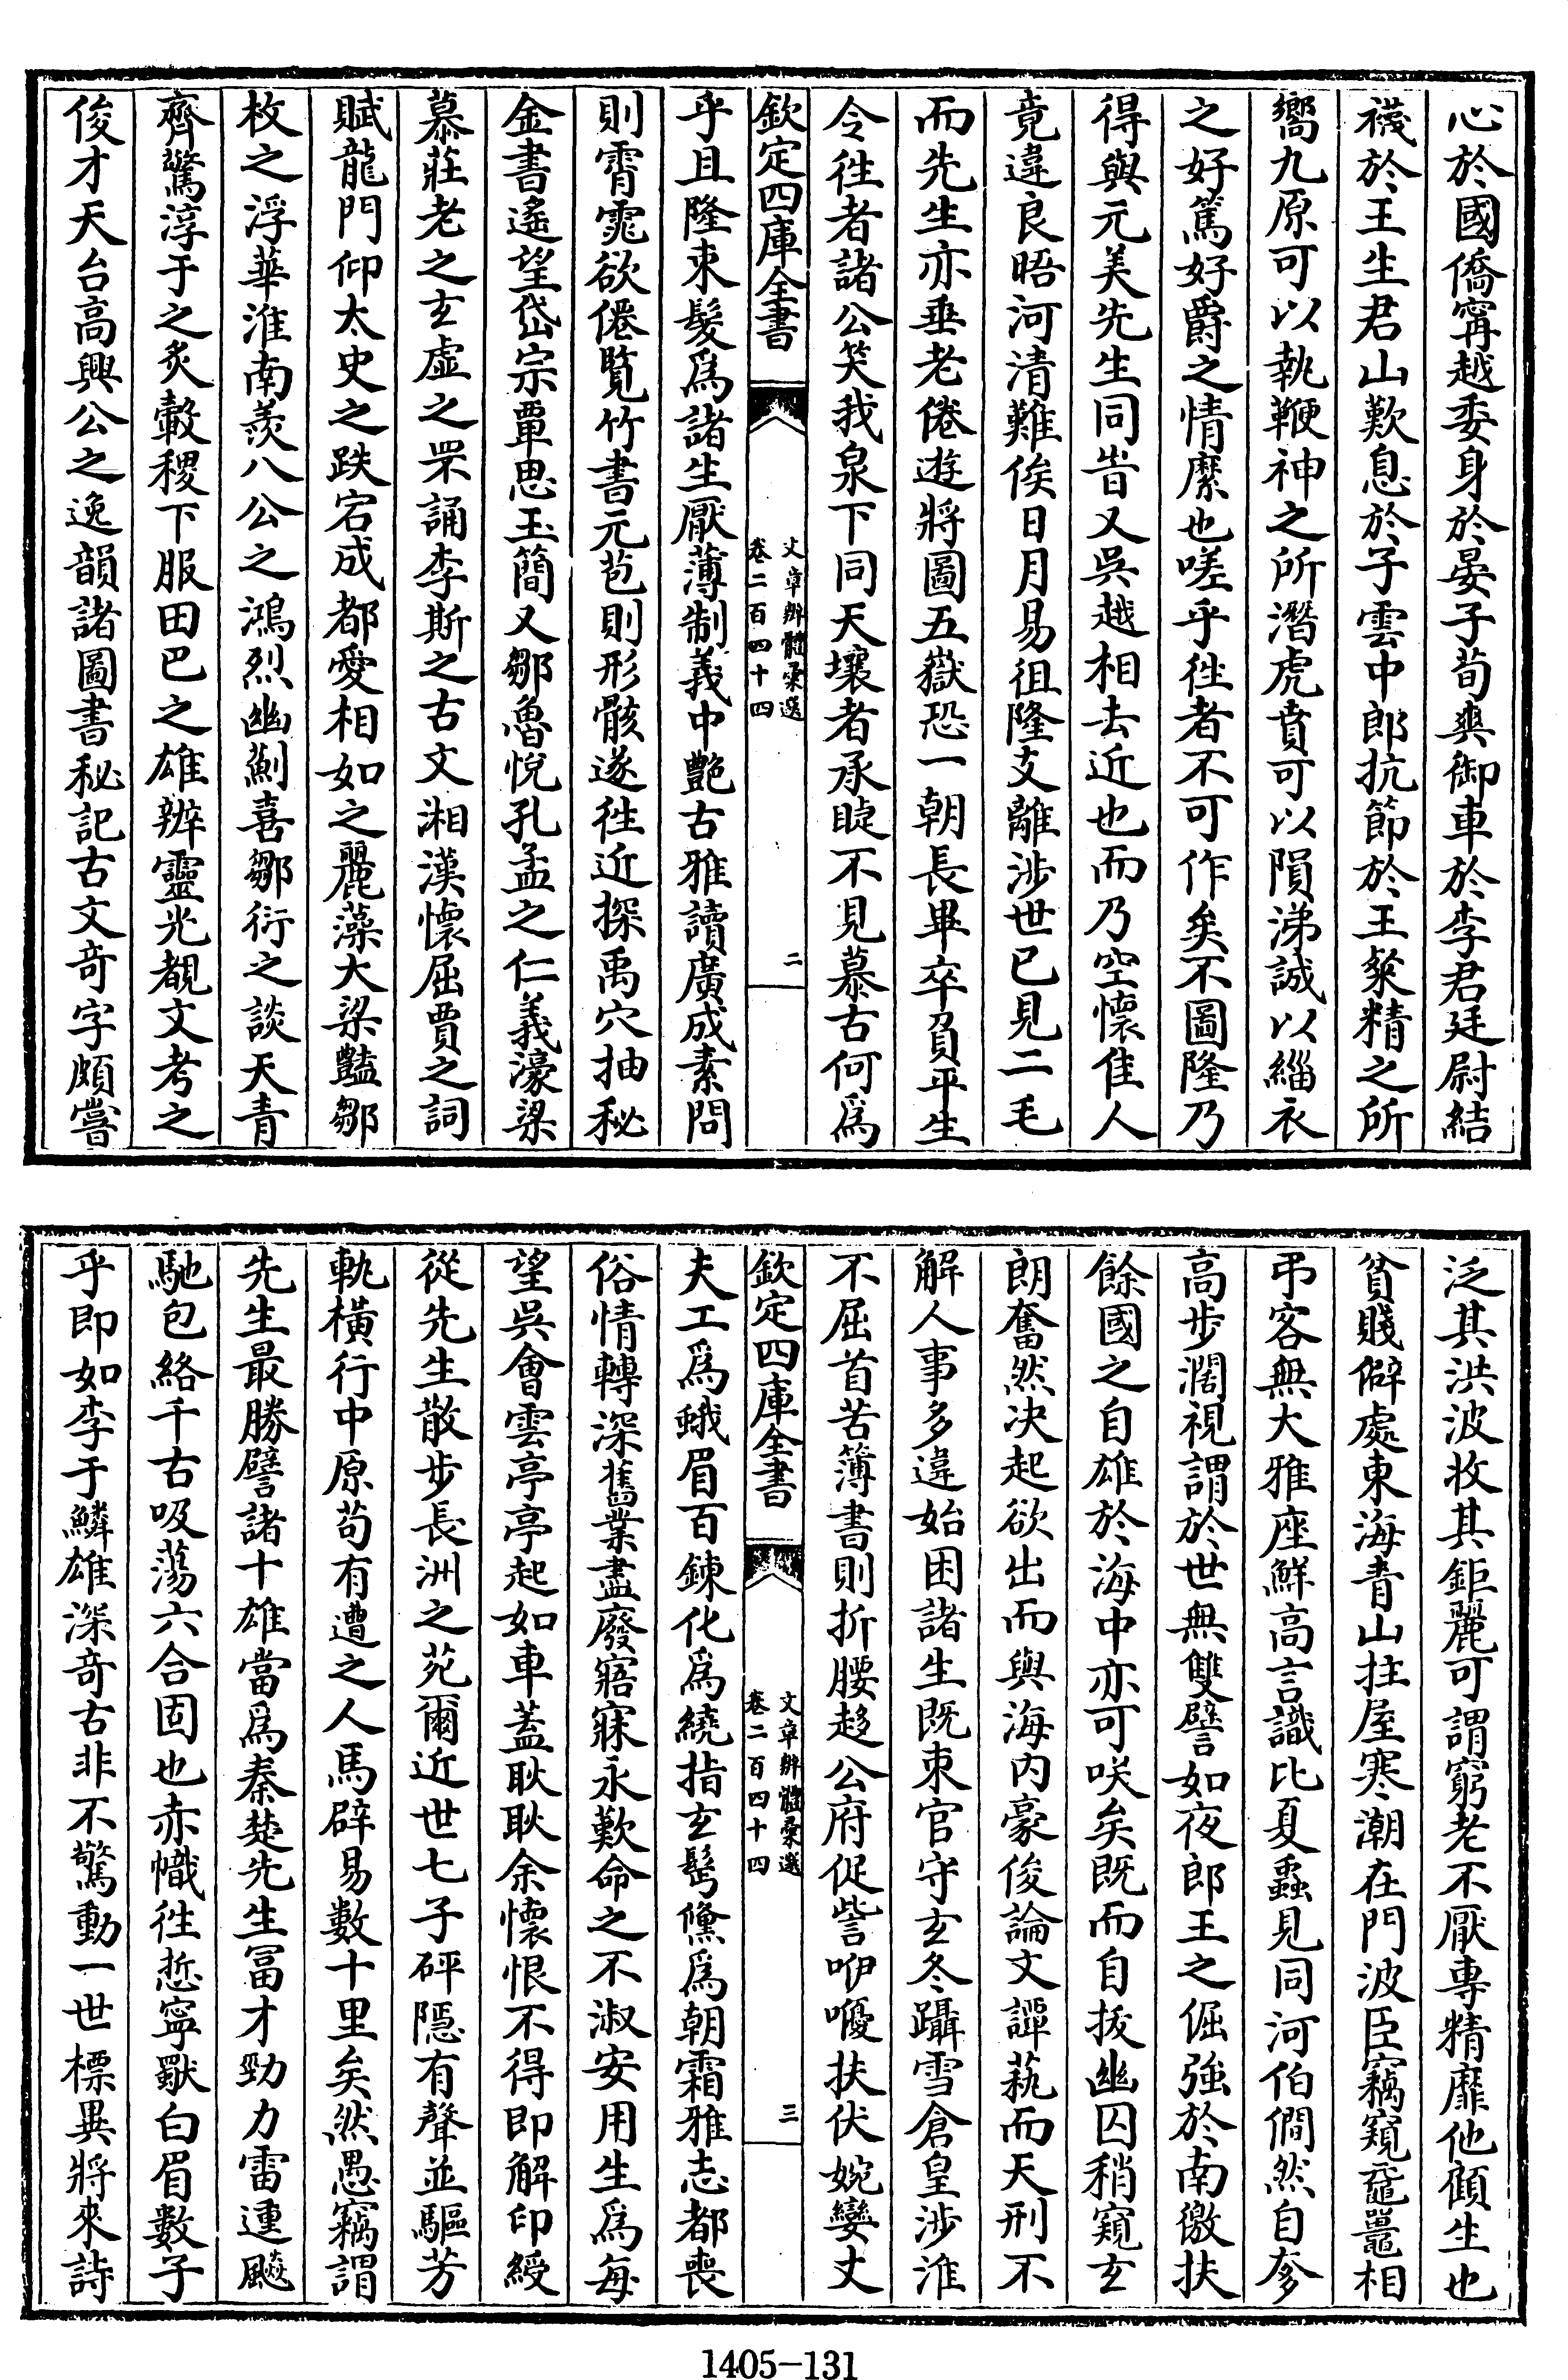 心於國僑寗越委身於晏子荀爽御車於李君廷尉結
襪於王生君山歎息於子雲中郎抗節於王粲精之所
嚮九原可以執鞭神之所潛虎賁可以隕涕誠以緇衣
之好篤好爵之情縻也嗟乎徃者不可作矣不圖隆乃
得與元美先生同旹又吳越相去近也而乃空懐隹人
竟違良晤河清難俟日月易徂隆支離涉世已見二毛
而先生亦垂老倦遊將圖五嶽恐一朝長畢卒負平生
令徃者諸公笑我泉下同天壤者承睫不見慕古何爲
欽定四庫全書
文章辨體彚選
卷二百四十四
二
乎且隆束髮爲諸生厭薄制義中艶古雅讀廣成素問
則霄霓欲倦覧竹書元苞則形骸遂徃近探禹穴抽秘
金書遙望岱宗覃思玉簡又鄒魯悅孔孟之仁義濠梁
慕莊老之玄虛之罘誦李斯之古文湘漢懐屈賈之詞
賦龍門仰太史之跌宕成都愛相如之麗藻大梁豔鄒
枚之浮華淮南羨八公之鴻烈幽薊喜鄒衍之談天青
齊驚淳于之炙轂稷下服田巴之雄辨靈光覩文考之
俊才天台高興公之逸韻諸圖書秘記古文竒字頗嘗
泛其洪波收其鉅麗可謂窮老不厭專精靡他顧生也
貧賤僻處東海青山拄屋寒潮在門波臣竊窺黿鼉相
弔客無大雅座鮮高言識比夏蟲見同河伯僩然自奓
高步濶視謂於世無雙譬如夜郎王之倔強於南徼扶
餘國之自雄於海中亦可咲矣既而自拔幽囚稍窺玄
朗奮然决起欲出而與海内豪俊論文譚藝而天刑不
解人事多違始困諸生既束官守玄冬躡雪倉皇涉淮
不屈首苦簿書則折腰趍公府促訾咿嚘扶伏婉孌丈
欽定四庫全書
文章辨體彚選
卷二百四十四
三
夫工爲蛾眉百錬化爲繞指玄髩儵爲朝霜雅志都喪
俗情轉深舊業盡廢寤寐永歎命之不淑安用生爲每
望吳會雲亭亭起如車蓋耿耿余懐恨不得即解印綬
從先生散步長洲之苑爾近世七子砰隱有聲並驅芳
軌橫行中原苟有遭之人馬辟易數十里矣然愚竊謂
先生最勝譬諸十雄當爲秦楚先生冨才勁力雷運飈
馳包絡千古吸蕩六合固也赤幟徃悊寧獸白眉數子
乎即如李于鱗雄深竒古非不驚動一世標異將來詩
1405-131